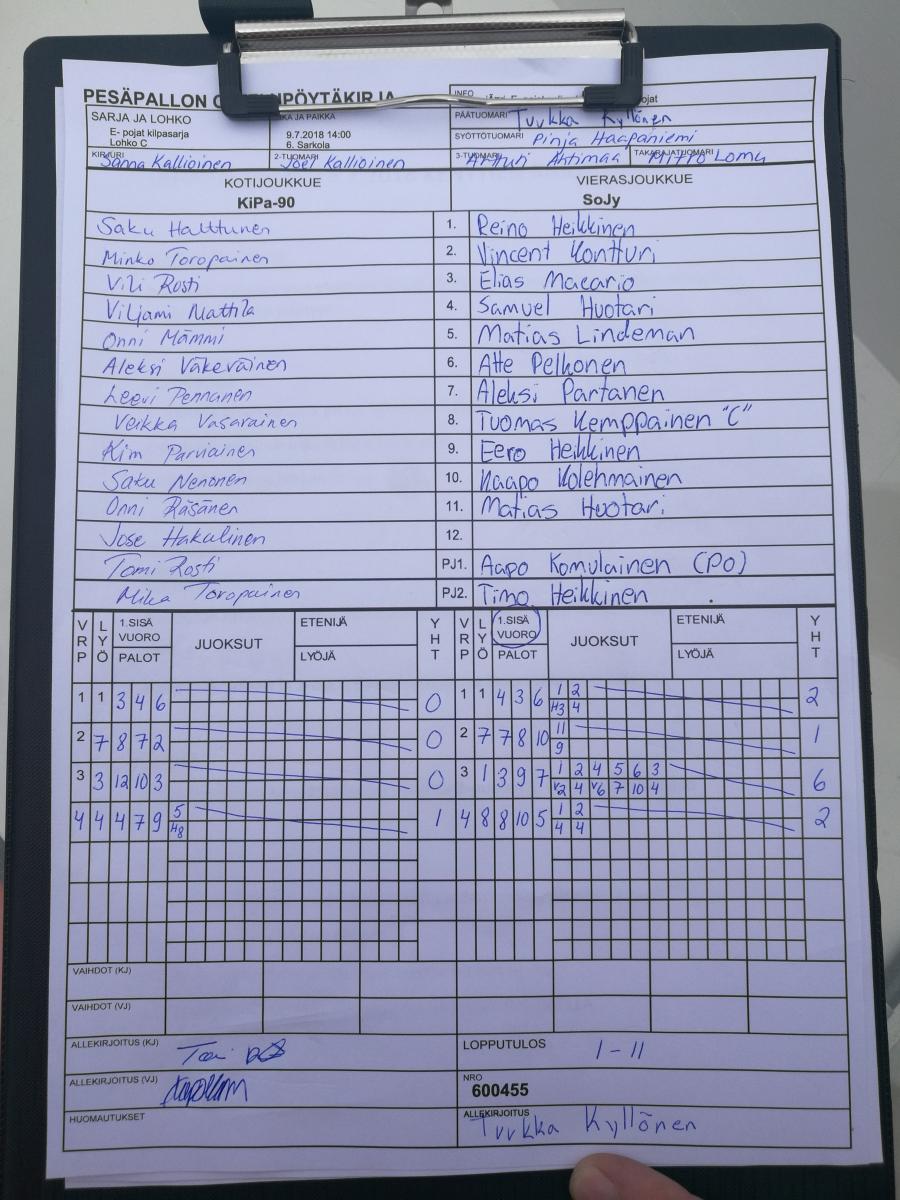 PESÄPALLON
INFO
pojat
SARJA JA LOHKO
E- pojat kilpasarja
Lohko C
KA JA PAIKKA
9.7.2018 14:00
6. Sarkola
PÄÄTUOMARI Tuukka Kyllönen
SYÖTTÖTUOMARI Pinja Haapaniemi
KIRJURI Sanna Kallioinen
2-TUOMARI Joel Kallioinen
3-TUOMARI Artturi Ahtimaa
TAKARAJATUOMARI Mitro Lomu
KOTIJOUKKUE VIERASJOUKKUE
KiPa-90 SoJy
Saku Halttunen 1. Reino Heikkinen
Minko Toropainen 2. Vincent Kontturi
Vili Rosti 3. Elias Macario
Viljami Mattila 4. Samuel Huotari
Onni Mämmi 5. Matias Lindeman
Aleksi Väkeväinen 6. Atte Pelkonen
Leevi Pennanen 7. Aleksi Partanen
Veikka Vasarainen 8. Tuomas Kemppainen "C"
Kim Parviainen 9. Eero Heikkinen
Saku Nenonen 10. Kaapo Kolehmainen
Onni Räsänen 11. Matias Huotari
Jose Hakulinen 12.
Tomi Rosti PJ1. Aapo Komulainen (PO)
Mika Toropainen PJ2. Timo Heikkinen
VRP LYÖ 1.SISÄ VUORO PALOT JUOKSUT ETENIJÄ LYÖJÄ YHT VRP LYÖ 1.SISÄ VUORO PALOT JUOKSUT ETENIJÄ LYÖJÄ YHT
1 1 3 4 6 0 1 1 4 3 6 1 2 2
H3 4
2 7 8 7 2 0 2 7 7 8 10 11 1
9
3 3 12 10 3 0 3 1 3 9 7 1 2 4 5 6 3 6
V2 4 V6 7 10 4
4 4 4 7 9 5 1 4 8 8 10 5 1 2 2
H8 4 4
VAIHDOT (KJ)
VAIHDOT (VJ)
ALLEKIRJOITUS (KJ)
LOPPUTULOS 1-11
ALLEKIRJOITUS (VJ)
NRO
600455
HUOMAUTUKSET
ALLEKIRJOITUS
Tuukka Kyllönen